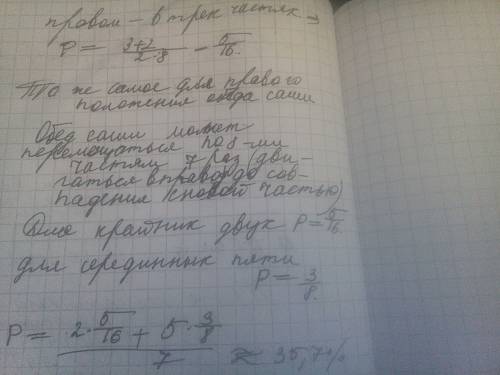 правом – в трех частях →
P = (3+2)/(2·8) – 5/16
То же самое для правого
положения обеда саши
Обед саши может
перемещаться по 8-ми
частям 7 раз (дви-
гаться вправо до сов-
падения с новой частью)
Для крайних двух P = 5/16
для серединных пяти
P = 3/8
P = (2·5/16 + 5·3/8)/7 ≈ 35,7%